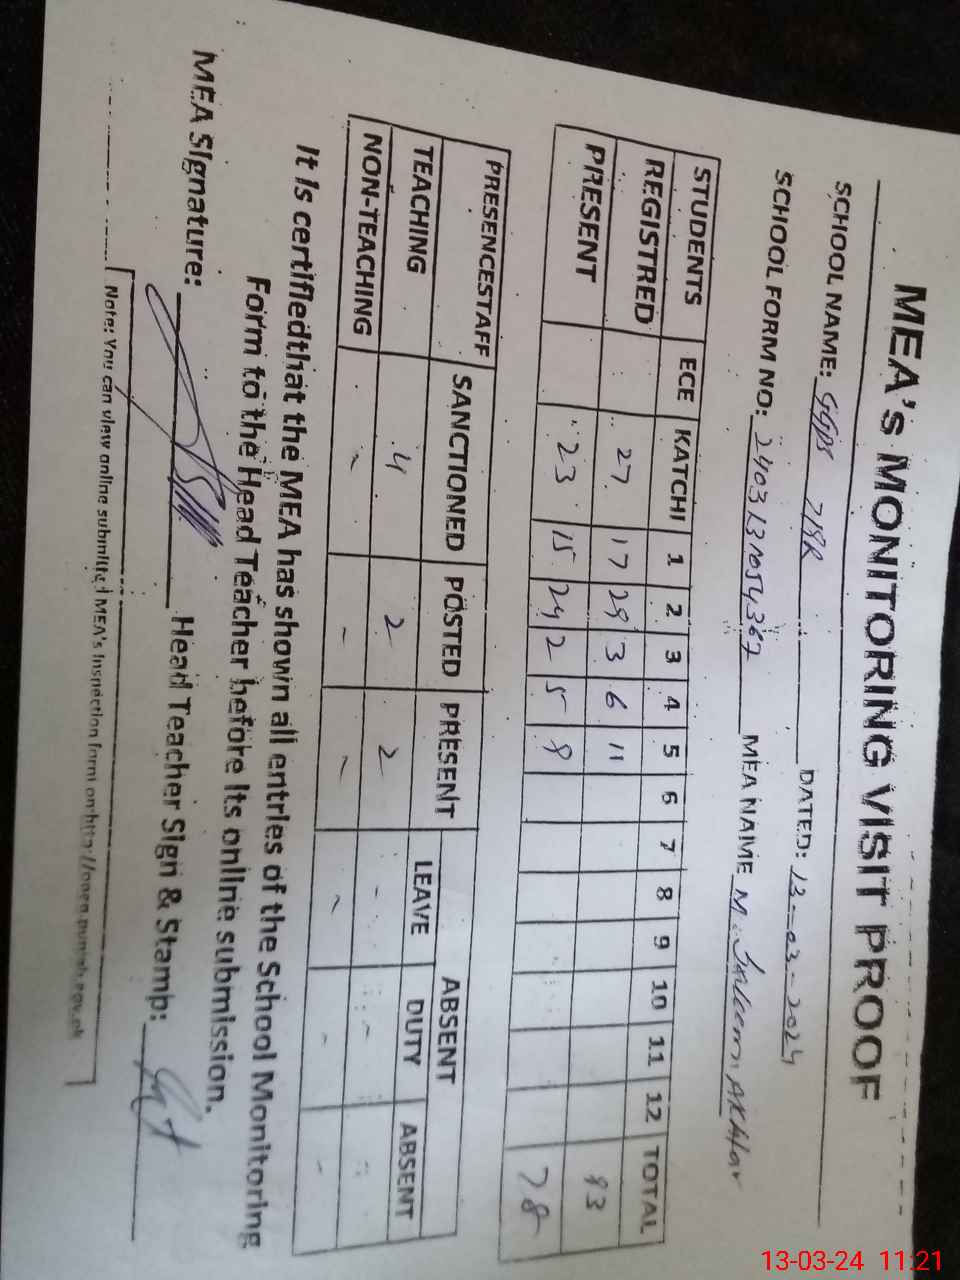 MEA's MONITORING VISIT PROOF
SCHOOL NAME: GGPS 219R DATED: 13-03-2024
SCHOOL FORM NO: MEA NAME M. Akhtar
STUDENTS ECE KATCHI 1 2 3 4 5 6 7 8 9 10 11 12 TOTAL
REGISTRED 27 17 29 3 6 11 93
PRESENT 23 15 24 2 5 9 78
PRESENCESTAFF SANCTIONED POSTED PRESENT ABSENT
LEAVE DUTY ABSENT
TEACHING 4 2 2 - - -
NON-TEACHING - - - - - -
It is certifiedthat the MEA has shown all entries of the School Monitoring
Form to the Head Teacher before its online submission.
MEA Signature: Head Teacher Sign & Stamp:
Note: You can view online submitted MEA's Inspection form on
13-03-24 11:21